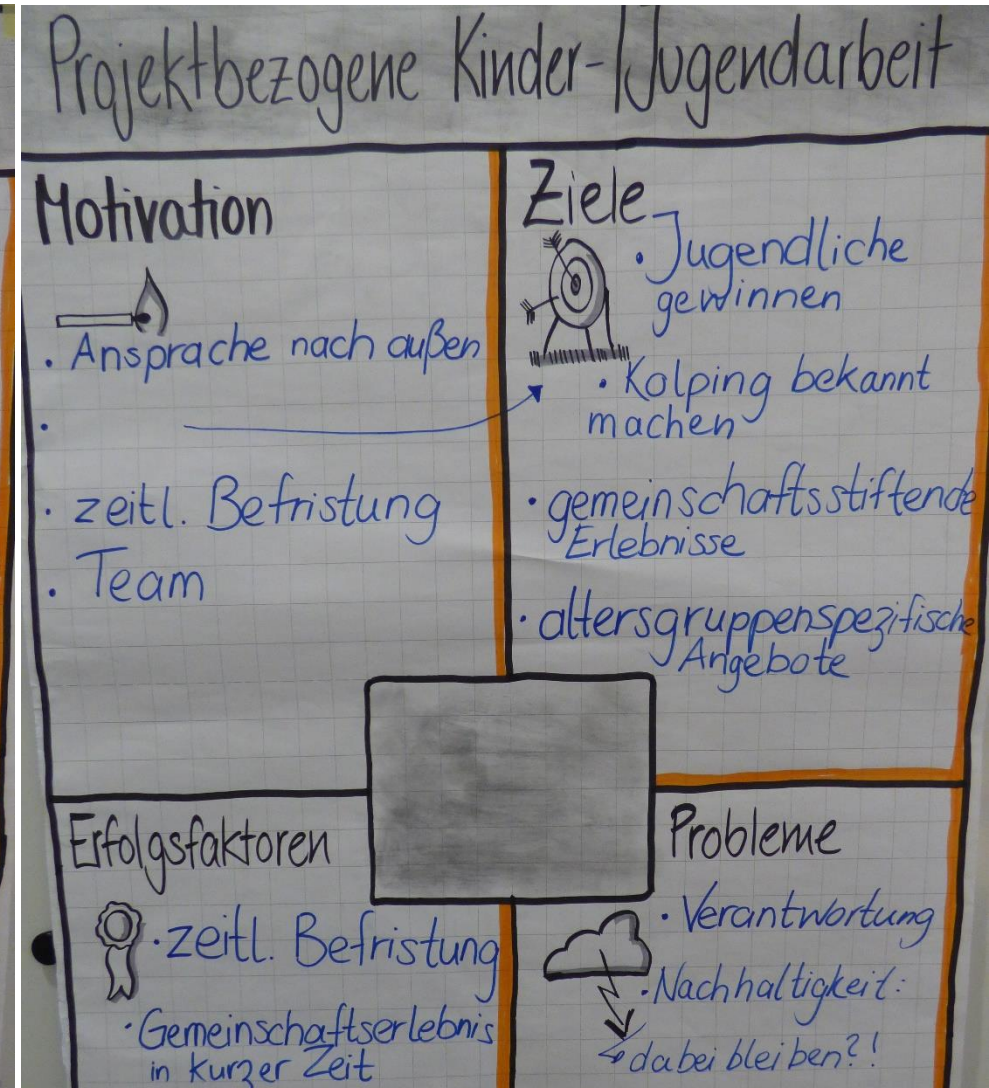 Projektbezogene Kinder-/Jugendarbeit
Motivation
• Ansprache nach außen
•
• zeitl. Befristung
• Team
Ziele
• Jugendliche
gewinnen
• Kolping bekannt
machen
• gemeinschaftsstiftende
Erlebnisse
• altersgruppenspezifische
Angebote
Erfolgsfaktoren
• zeitl. Befristung
• Gemeinschaftserlebnis
in kurzer Zeit
Probleme
• Verantwortung
• Nachhaltigkeit:
↳ dabei bleiben?!